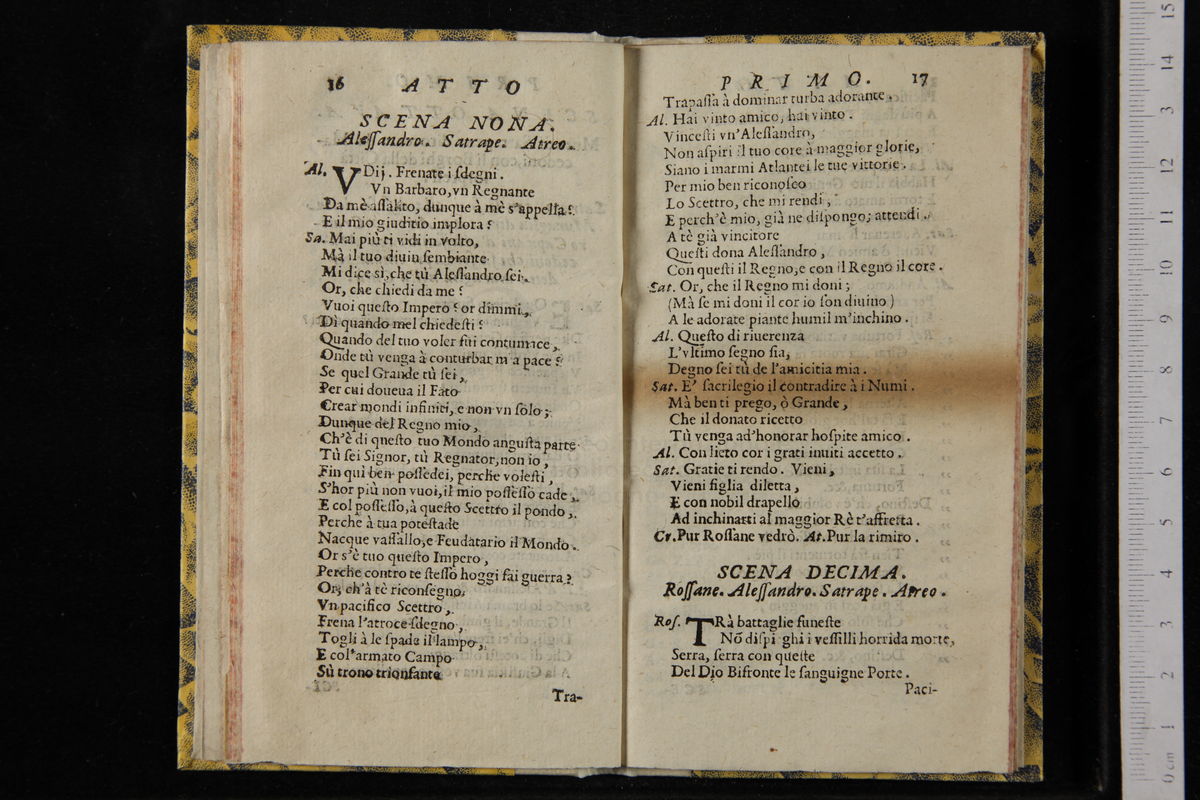 16 ATTO
SCENA NONA.
Alessandro. Satrape. Atreo.
Al. VDij. Frenate i ſdegni.
Vn Barbaro, vn Regnante
Da mè aſſalito, dunque à mè s'appella?
E il mio giuditio implora?
Sa. Mai più ti vidi in volto,
Mà il tuo diuin ſembiante
Mi dice sì, che tù Aleſſandro ſei.
Or, che chiedi da me?
Vuoi queſto Impero? or dimmi,
Dì quando mel chiedeſti?
Quando del tuo voler fui contumace,
Onde tù venga à conturbar mia pace?
Se quel Grande tù ſei,
Per cui doueua il Fato
Crear mondi infiniti, e non vn ſolo;
Dunque del Regno mio,
Ch'è di queſto tuo Mondo anguſta parte
Tù ſei Signor, tù Regnator, non io,
Fin quì ben poſſedei, perche voleſti,
S'hor più non vuoi, il mio poſſeſſo cade,
E col poſſeſſo, à queſto Scettro il pondo,
Perche à tua poteſtade
Nacque vaſſallo, e Feudatario il Mondo.
Or s'è tuo queſto Impero,
Perche contro te ſteſſo hoggi fai guerra?
Or, ch'à tè riconſegno
Vn pacifico Scettro,
Frena l'atroce ſdegno,
Togli à le ſpade il lampo,
E col'armato Campo
Sù trono trionfante
Tra-
PRIMO. 17
Trapaſſa à dominar turba adorante.
Al. Hai vinto amico, hai vinto.
Vinceſti vn'Aleſſandro,
Non aſpiri il tuo core à maggior glorie,
Siano i marmi Atlantei le tue vittorie.
Per mio ben riconoſco
Lo Scettro, che mi rendi,
E perch'è mio, già ne diſpongo; attendi.
A tè già vincitore
Queſti dona Aleſſandro,
Con queſti il Regno, e con il Regno il core.
Sat. Or, che il Regno mi doni;
(Mà ſe mi doni il cor io ſon diuino)
A le adorate piante humil m'inchino.
Al. Queſto di riuerenza
L'vltimo ſegno ſia,
Degno ſei tù de l'amicitia mia.
Sat. E' ſacrilegio il contradire à i Numi.
Mà ben ti prego, ò Grande,
Che il donato ricetto
Tù venga ad'honorar hoſpite amico.
Al. Con lieto cor i grati inuiti accetto.
Sat. Gratie ti rendo. Vieni,
Vieni figlia diletta,
E con nobil drapello
Ad inchinarti al maggior Rè t'affretta.
Cr. Pur Roſſane vedrò. At. Pur la rimiro.
SCENA DECIMA.
Roſſane. Aleſſandro. Satrape. Atreo.
Roſ. TRà battaglie funeſte
Nõ diſpighi i veſſilli horrida morte,
Serra, ſerra con queſte
Del Dio Bifronte le ſanguigne Porte.
Paci-